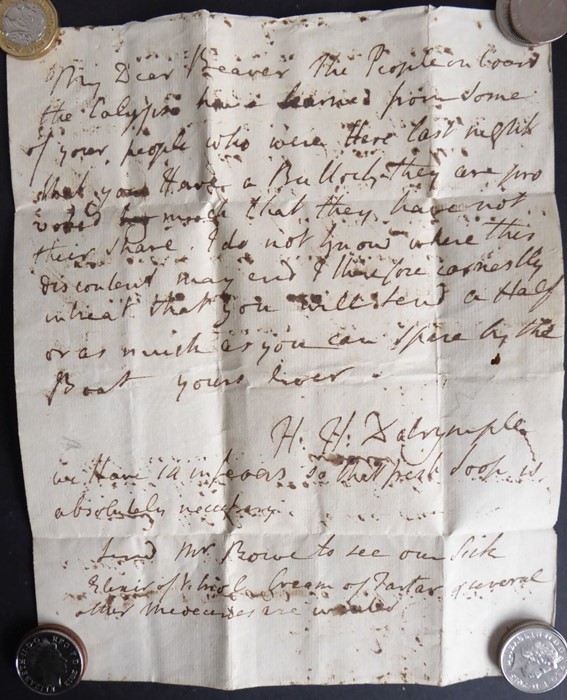 My Dear Beaver The People on board
the Calypso have learned from some
of your people who were Here last night
that you Have a Bullock they are pro
voked much that they have not
their share. I do not know where this
discontent may end I therefore earnestly
intreat that you will send a Half
or as much as you can spare by the
Boat yours ever
H. H. Dalrymple
we Have 14 in fevers so that fresh soop is
absolutely necessary
Send Mr Rowe to see our Sick
Elixir of Vitriol Cream of Tartar & several
other Medecines are wanted